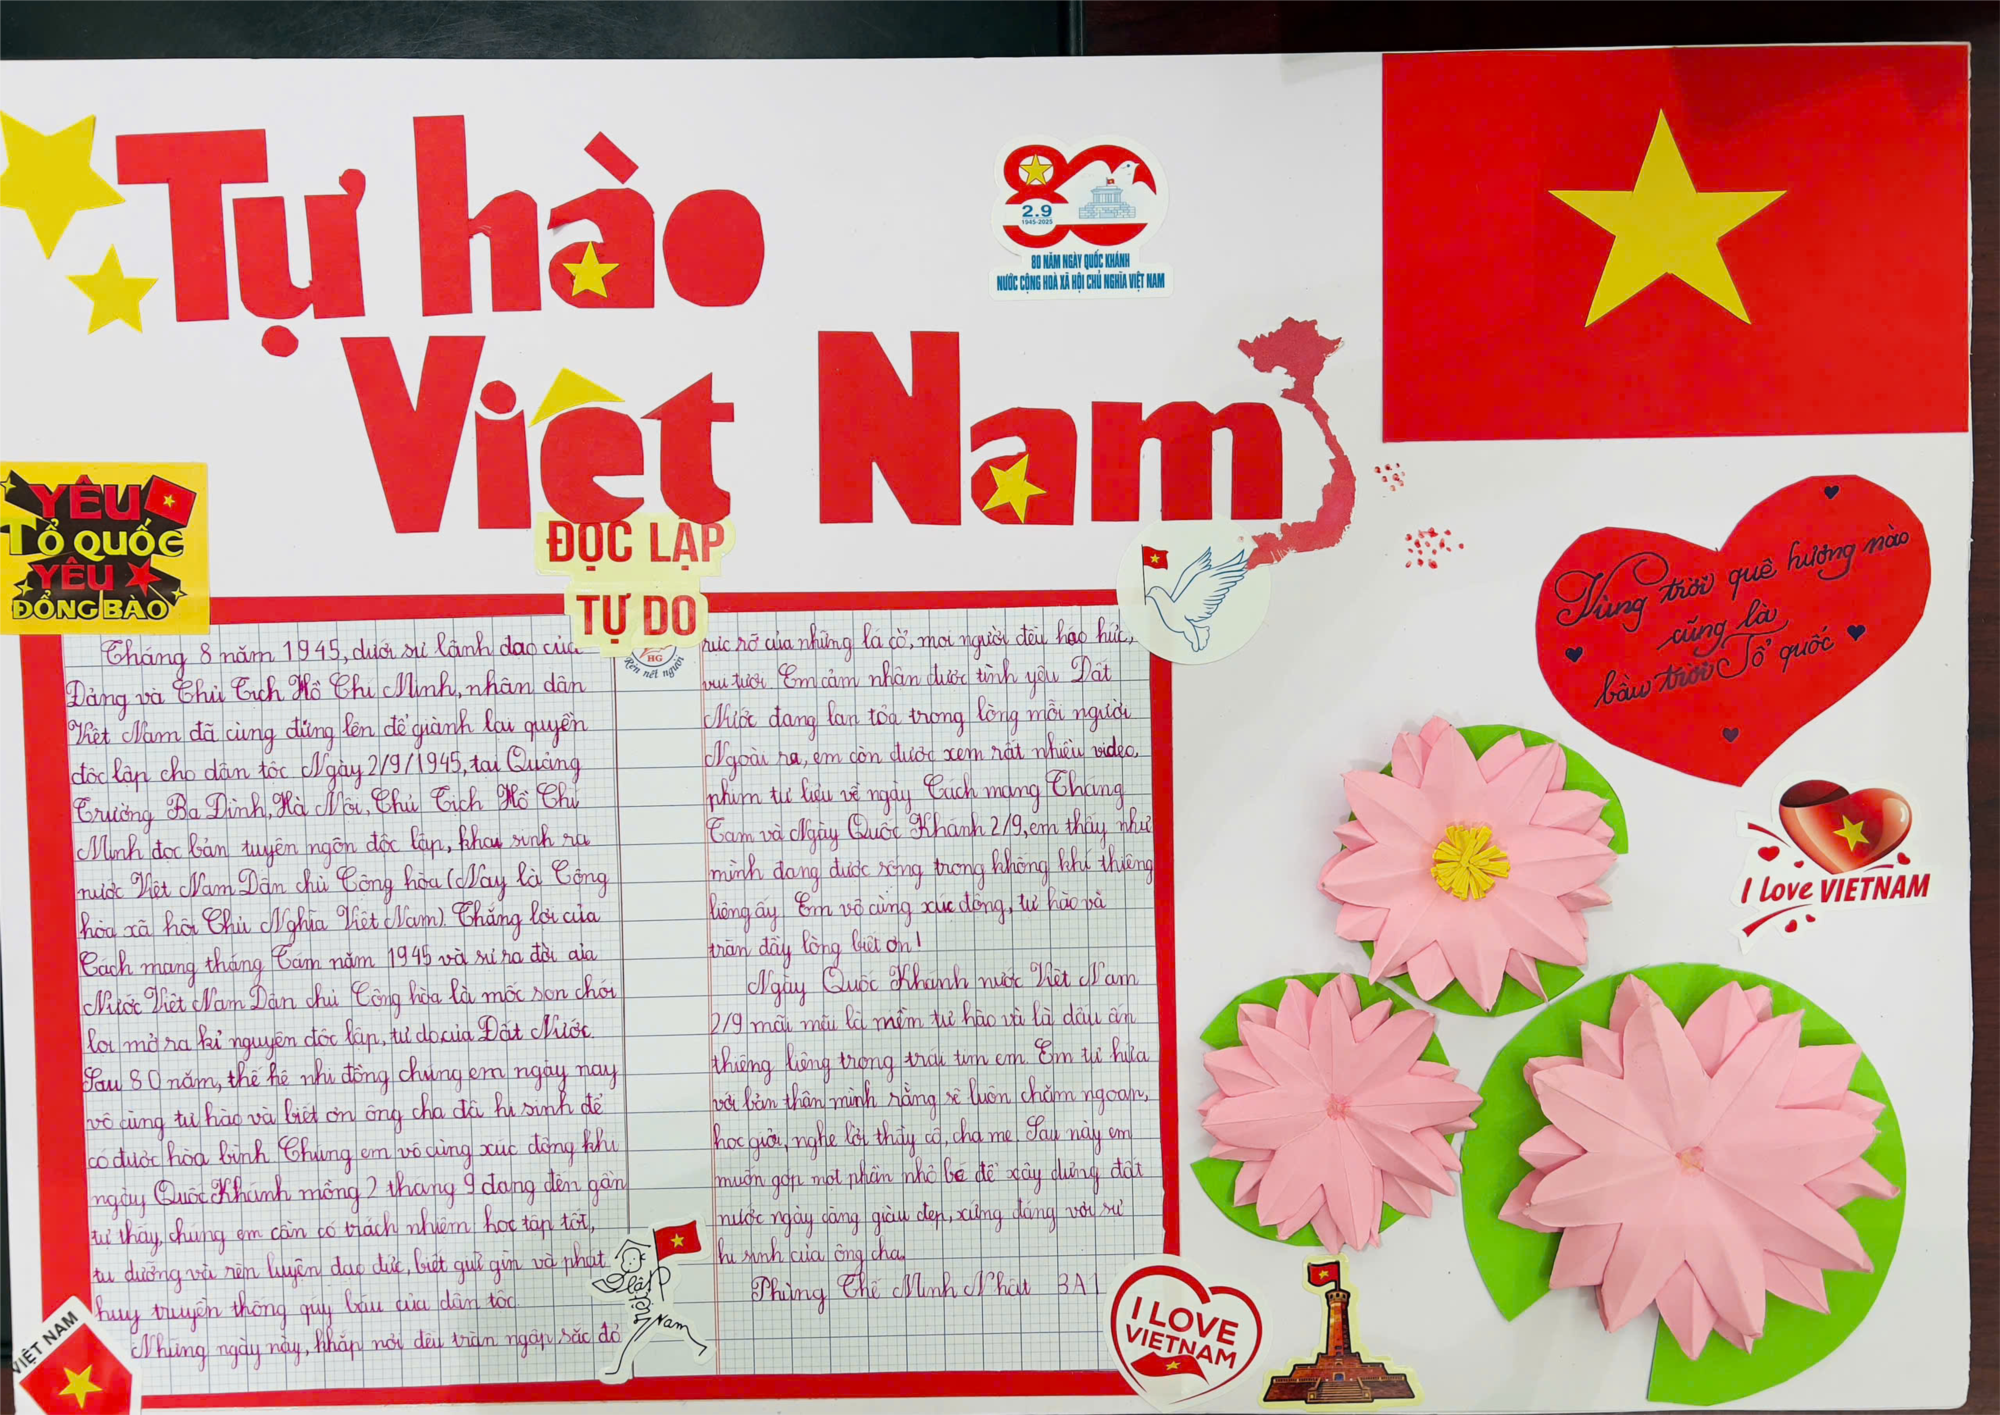 Tự hào
Việt Nam
2.9
1945-2025
80 NĂM NGÀY QUỐC KHÁNH
NƯỚC CỘNG HOÀ XÃ HỘI CHỦ NGHĨA VIỆT NAM
YÊU
TỔ QUỐC
YÊU
ĐỒNG BÀO
ĐỘC LẬP
TỰ DO
HG
Rèn nét người
Tháng 8 năm 1945, dưới sự lãnh đạo của
Đảng và Chủ Tịch Hồ Chí Minh, nhân dân
Việt Nam đã cùng đứng lên để giành lại quyền
độc lập cho dân tộc Ngày 2/9/1945, tại Quảng
Trường Ba Đình, Hà Nội, Chủ Tịch Hồ Chí
Minh đọc bản tuyên ngôn độc lập, khai sinh ra
nước Việt Nam Dân chủ Cộng hòa (Nay là Cộng
hòa xã hội Chủ Nghĩa Việt Nam). Thắng lợi của
Cách mạng tháng Tám năm 1945 và sự ra đời của
Nước Việt Nam Dân chủ Cộng hòa là mốc son chói
lọi mở ra kỉ nguyên độc lập, tự do của Đất Nước.
Sau 80 năm, thế hệ nhi đồng chúng em ngày nay
vô cùng tự hào và biết ơn ông cha đã hi sinh để
có được hòa bình Chúng em vô cùng xúc động khi
ngày Quốc Khánh mồng 2 tháng 9 đang đến gần
tự thấy, chúng em cần có trách nhiệm học tập tốt,
tu dưỡng và rèn luyện đạo đức, biết giữ gìn và phát
huy truyền thống quý báu của dân tộc.
Những ngày này, khắp nơi đều tràn ngập sắc đỏ
rực rỡ của những lá cờ, mọi người đều háo hức,
vui tươi. Em cảm nhận được tình yêu Đất
Nước đang lan tỏa trong lòng mỗi người
Ngoài ra, em còn được xem rất nhiều video,
phim tư liệu về ngày Cách mạng Tháng
Tám và Ngày Quốc Khánh 2/9, em thấy như
mình đang được sống trong không khí thiêng
liêng ấy. Em vô cùng xúc động, tự hào và
tràn đầy lòng biết ơn!
Ngày Quốc Khánh nước Việt Nam
2/9 mãi mãi là niềm tự hào và là dấu ấn
thiêng liêng trong trái tim em. Em tự hứa
với bản thân mình rằng sẽ luôn chăm ngoan,
học giỏi, nghe lời thầy cô, cha mẹ. Sau này em
muốn góp một phần nhỏ bé để xây dựng đất
nước ngày càng giàu đẹp, xứng đáng với sự
hi sinh của ông cha.
Phùng Thế Minh Nhật 3A1
Vùng trời quê hương nào
cũng là
bầu trời Tổ quốc
I Love VIETNAM
I LOVE
VIETNAM
VIỆT NAM
Nam